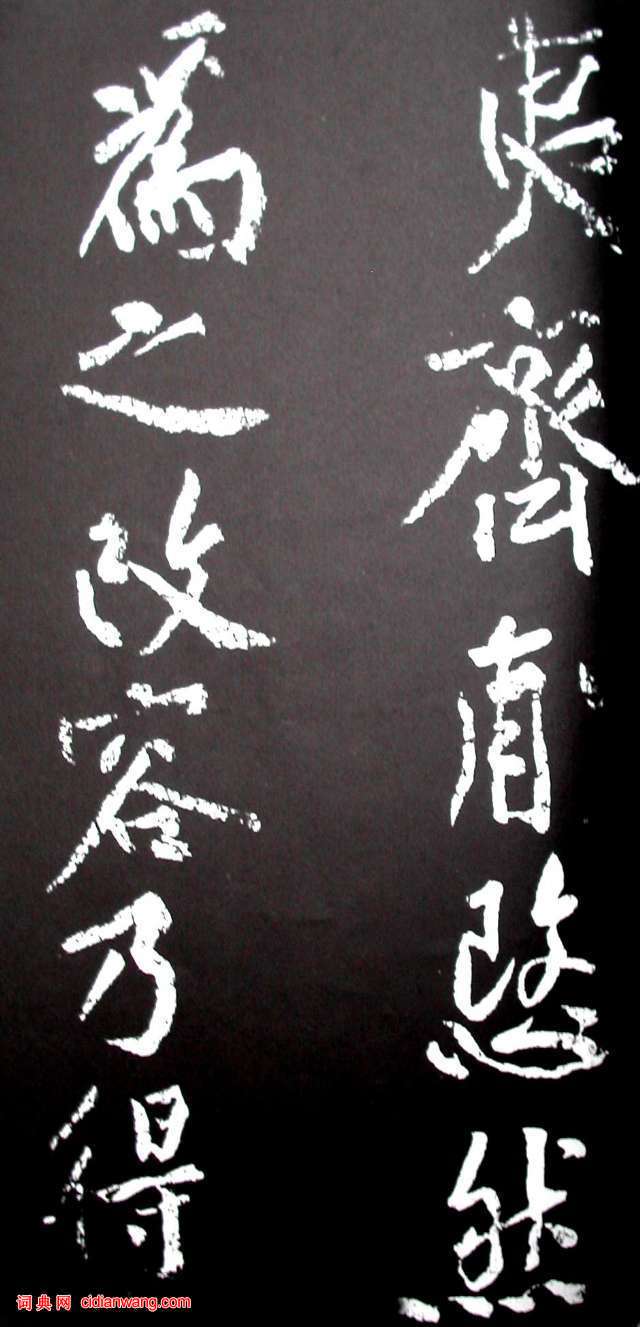 夷齊愍然
為之改容乃得
词典网 cidianwang.com